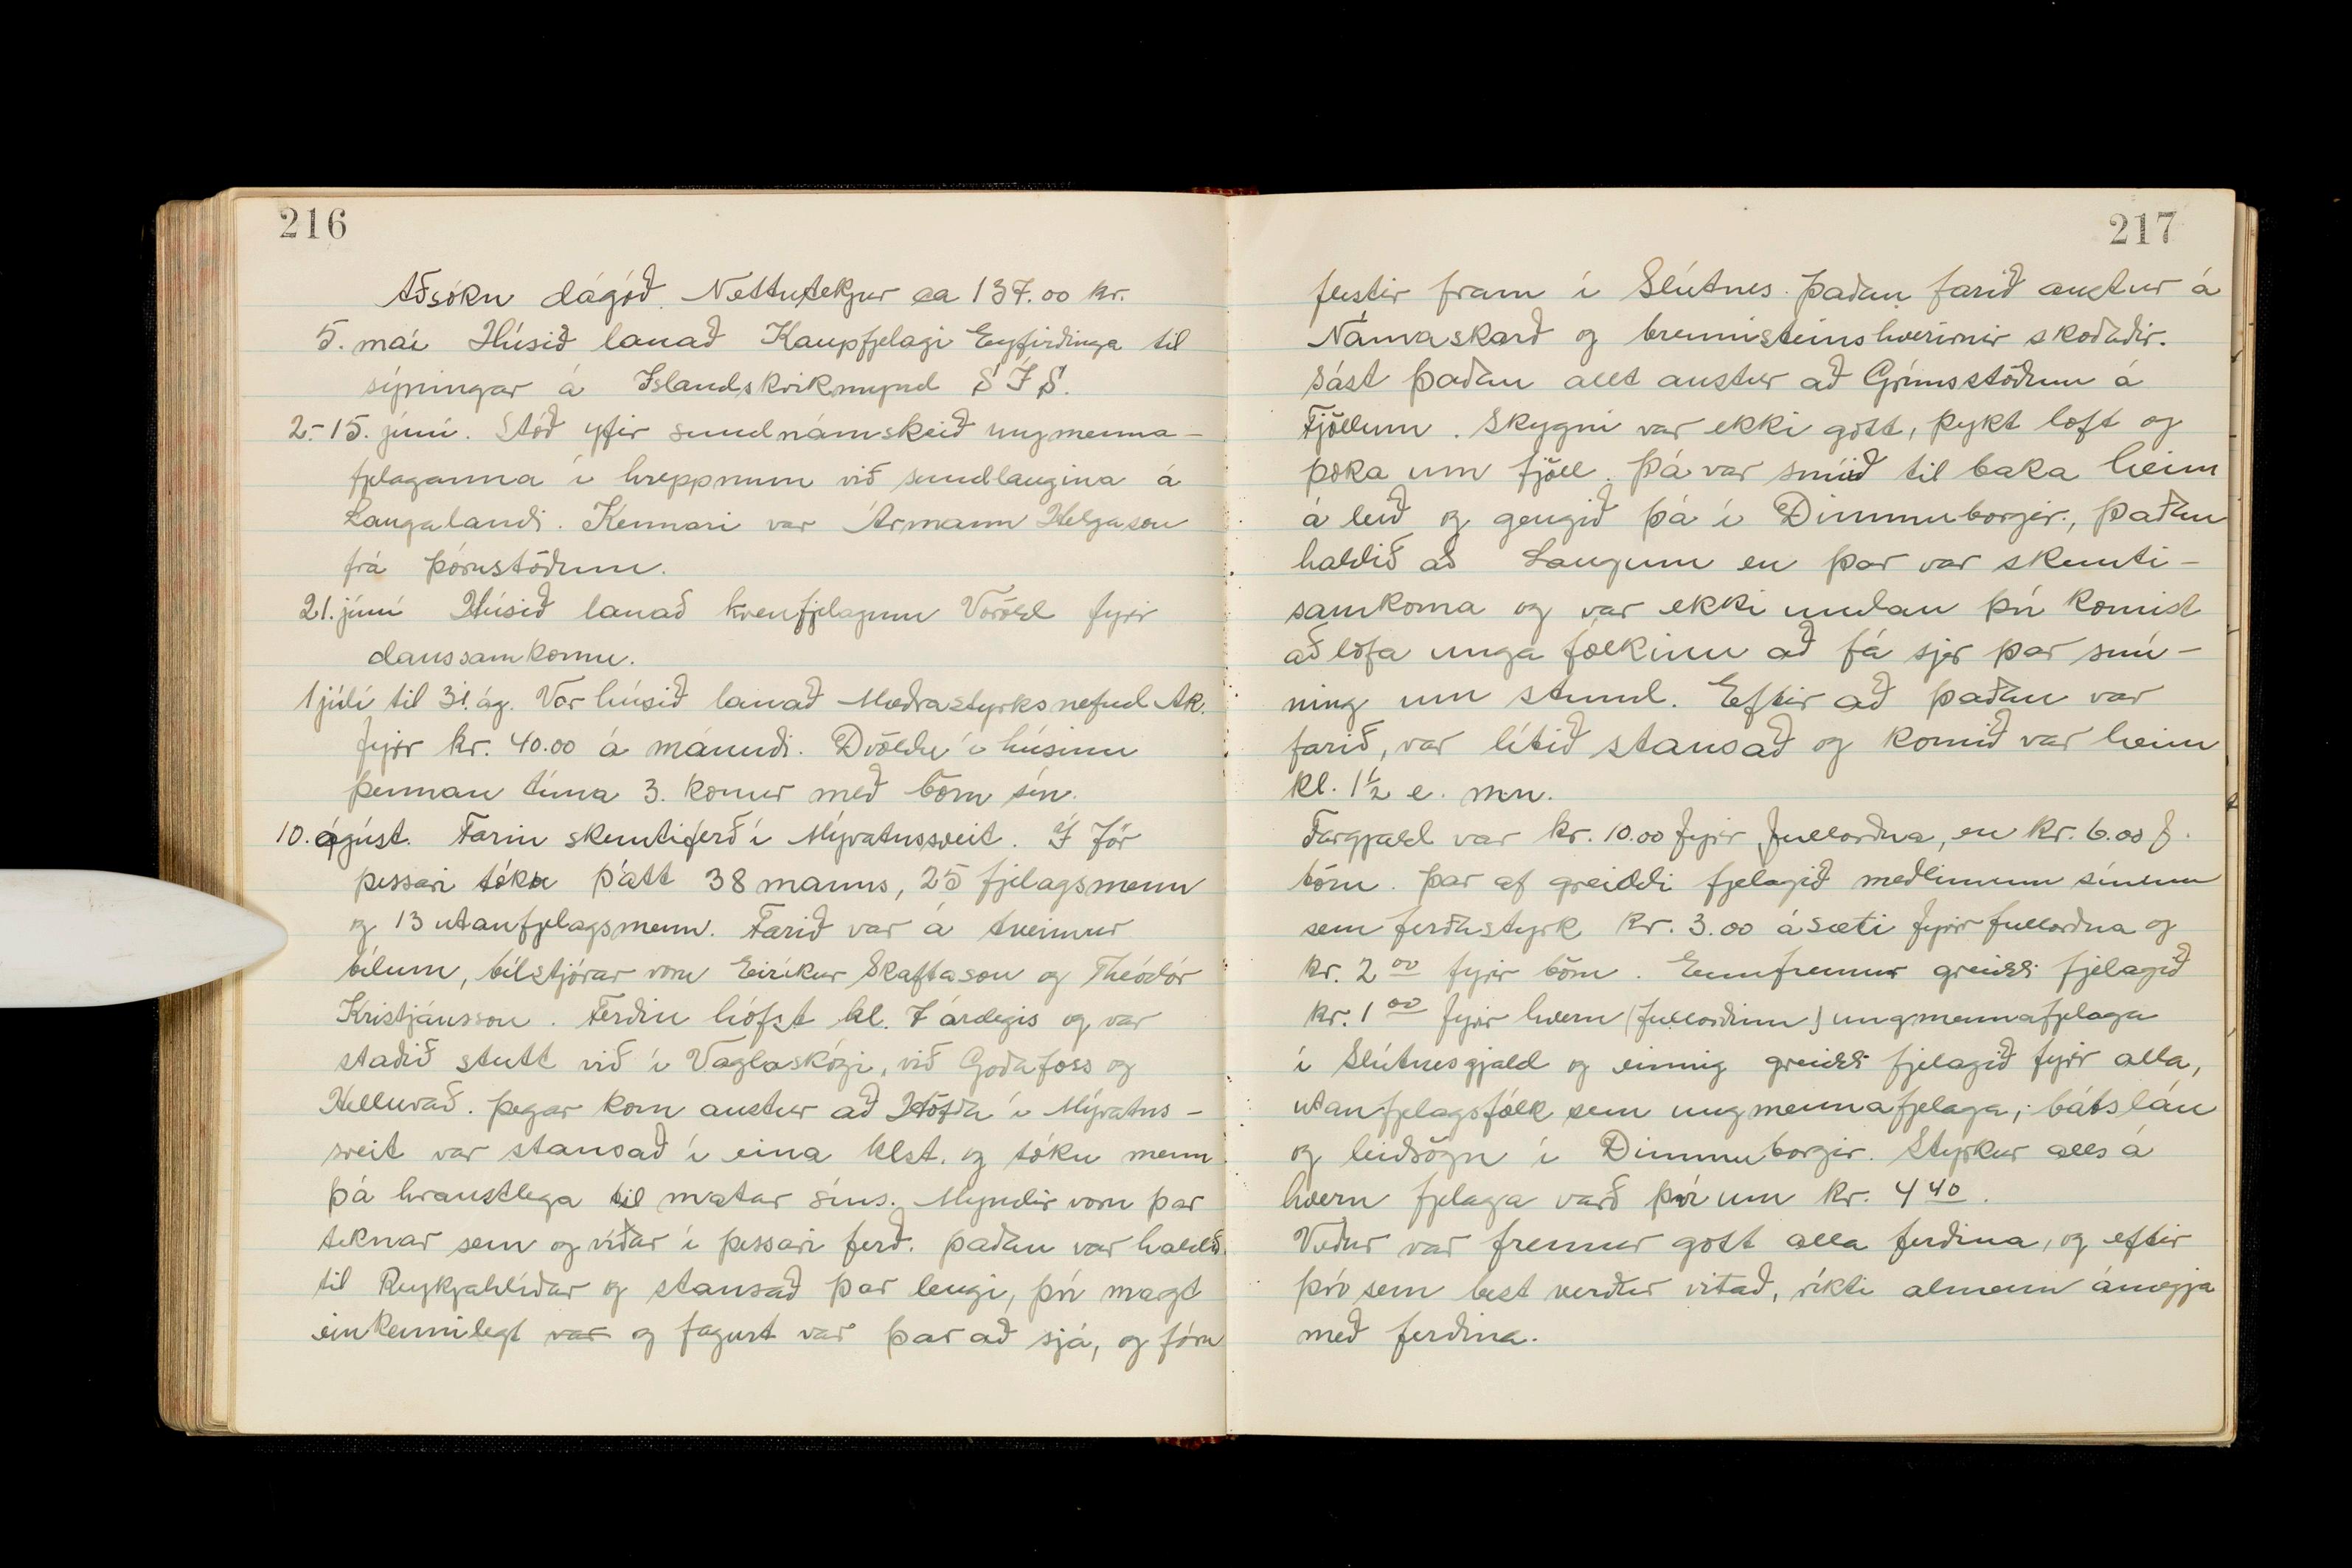 216
Aðsókn dágóð. Nettutekjur ca 137.00 kr.
5. maí Húsið lanað Kaupfjelagi Eyfirðinga til
sýningar á Islandskvikmynd S Í S.
2.-15. júní. Stóð yfir sundnámskeið ungmenna-
fjelaganna í hreppnum við sundlaugina á
Laugalandi. Kennari var Ármann Helgason
frá Þórustöðum.
21. júní Húsið lanað kvenfjelaginu Voröld fyrir
danssamkomu.
1 júlí til 31. ág. Var húsið lanað Mæðrastyrksnefnd Ak.
fyrir kr. 40.00 á mánuði. Dvöldu í húsinu
þennan tíma 3. konur með börn sín.
10. ágúst. Farin skemtiferð í Mývatnssveit. Í för
þessari tóku þátt 38 manns, 25 fjelagsmenn
og 13 utanfjelagsmenn. Farið var á tveimur
bílum, bílstjórar voru Eiríkur Skaftason og Theódór
Kristjánsson. Ferðin hófst kl. 7 árdegis og var
staðið stutt við í Vaglaskógi, við Goðafoss og
Helluvað. Þegar kom austur að Höfða í Mývatns-
sveit var stansað í eina klst. og tóku menn
þá hraustlega til matar síns. Myndir voru þar
teknar sem og víðar í þessari ferð. Þaðan var haldið
til Reykjahlíðar og stansað þar lengi, því margt
einkennilegt var og fagurt var þar að sjá, og fóru
217
flestir fram í Slútnes. Þaðan farið austur á
Námaskarð og brennisteinshverirnir skoðaðir.
Sást þaðan allt austur að Grímsstöðum á
Fjöllum. Skygni var ekki gott, þykt loft og
þoka um fjöll. Þá var snúið til baka heim
á leið og gengið þá í Dimmuborgir, þaðan
haldið að Laugum en þar var skemti-
samkoma og var ekki undan því komist
að lofa unga fólkinu að fá sjer þar snú-
ning um stund. Eftir að þaðan var
farið, var lítið stansað og komið var heim
kl. 1½ e. mn.
Fargjald var kr. 10.00 fyrir fullorðna, en kr. 6.00 f.
börn. Þar af greiddi fjelagið meðlimum sínum
sem ferðastyrk kr. 3.00 á sæti fyrir fullorðna og
kr. 2 00 fyrir börn. Ennfremur greiddi fjelagið
kr. 1 00 fyrir hvern (fullorðinn) ungmennafjelaga
í Slútnesgjald og einnig greiddi fjelagið fyrir alla,
utanfjelagsfólk sem ungmennafjelaga, bátslán
og leiðsögn í Dimmuborgir. Styrkur alls á
hvern fjelaga varð því um kr. 4 40.
Veður var fremur gott alla ferðina, og eftir
því sem best verður vitað, ríkti almenn ánægja
með ferðina.